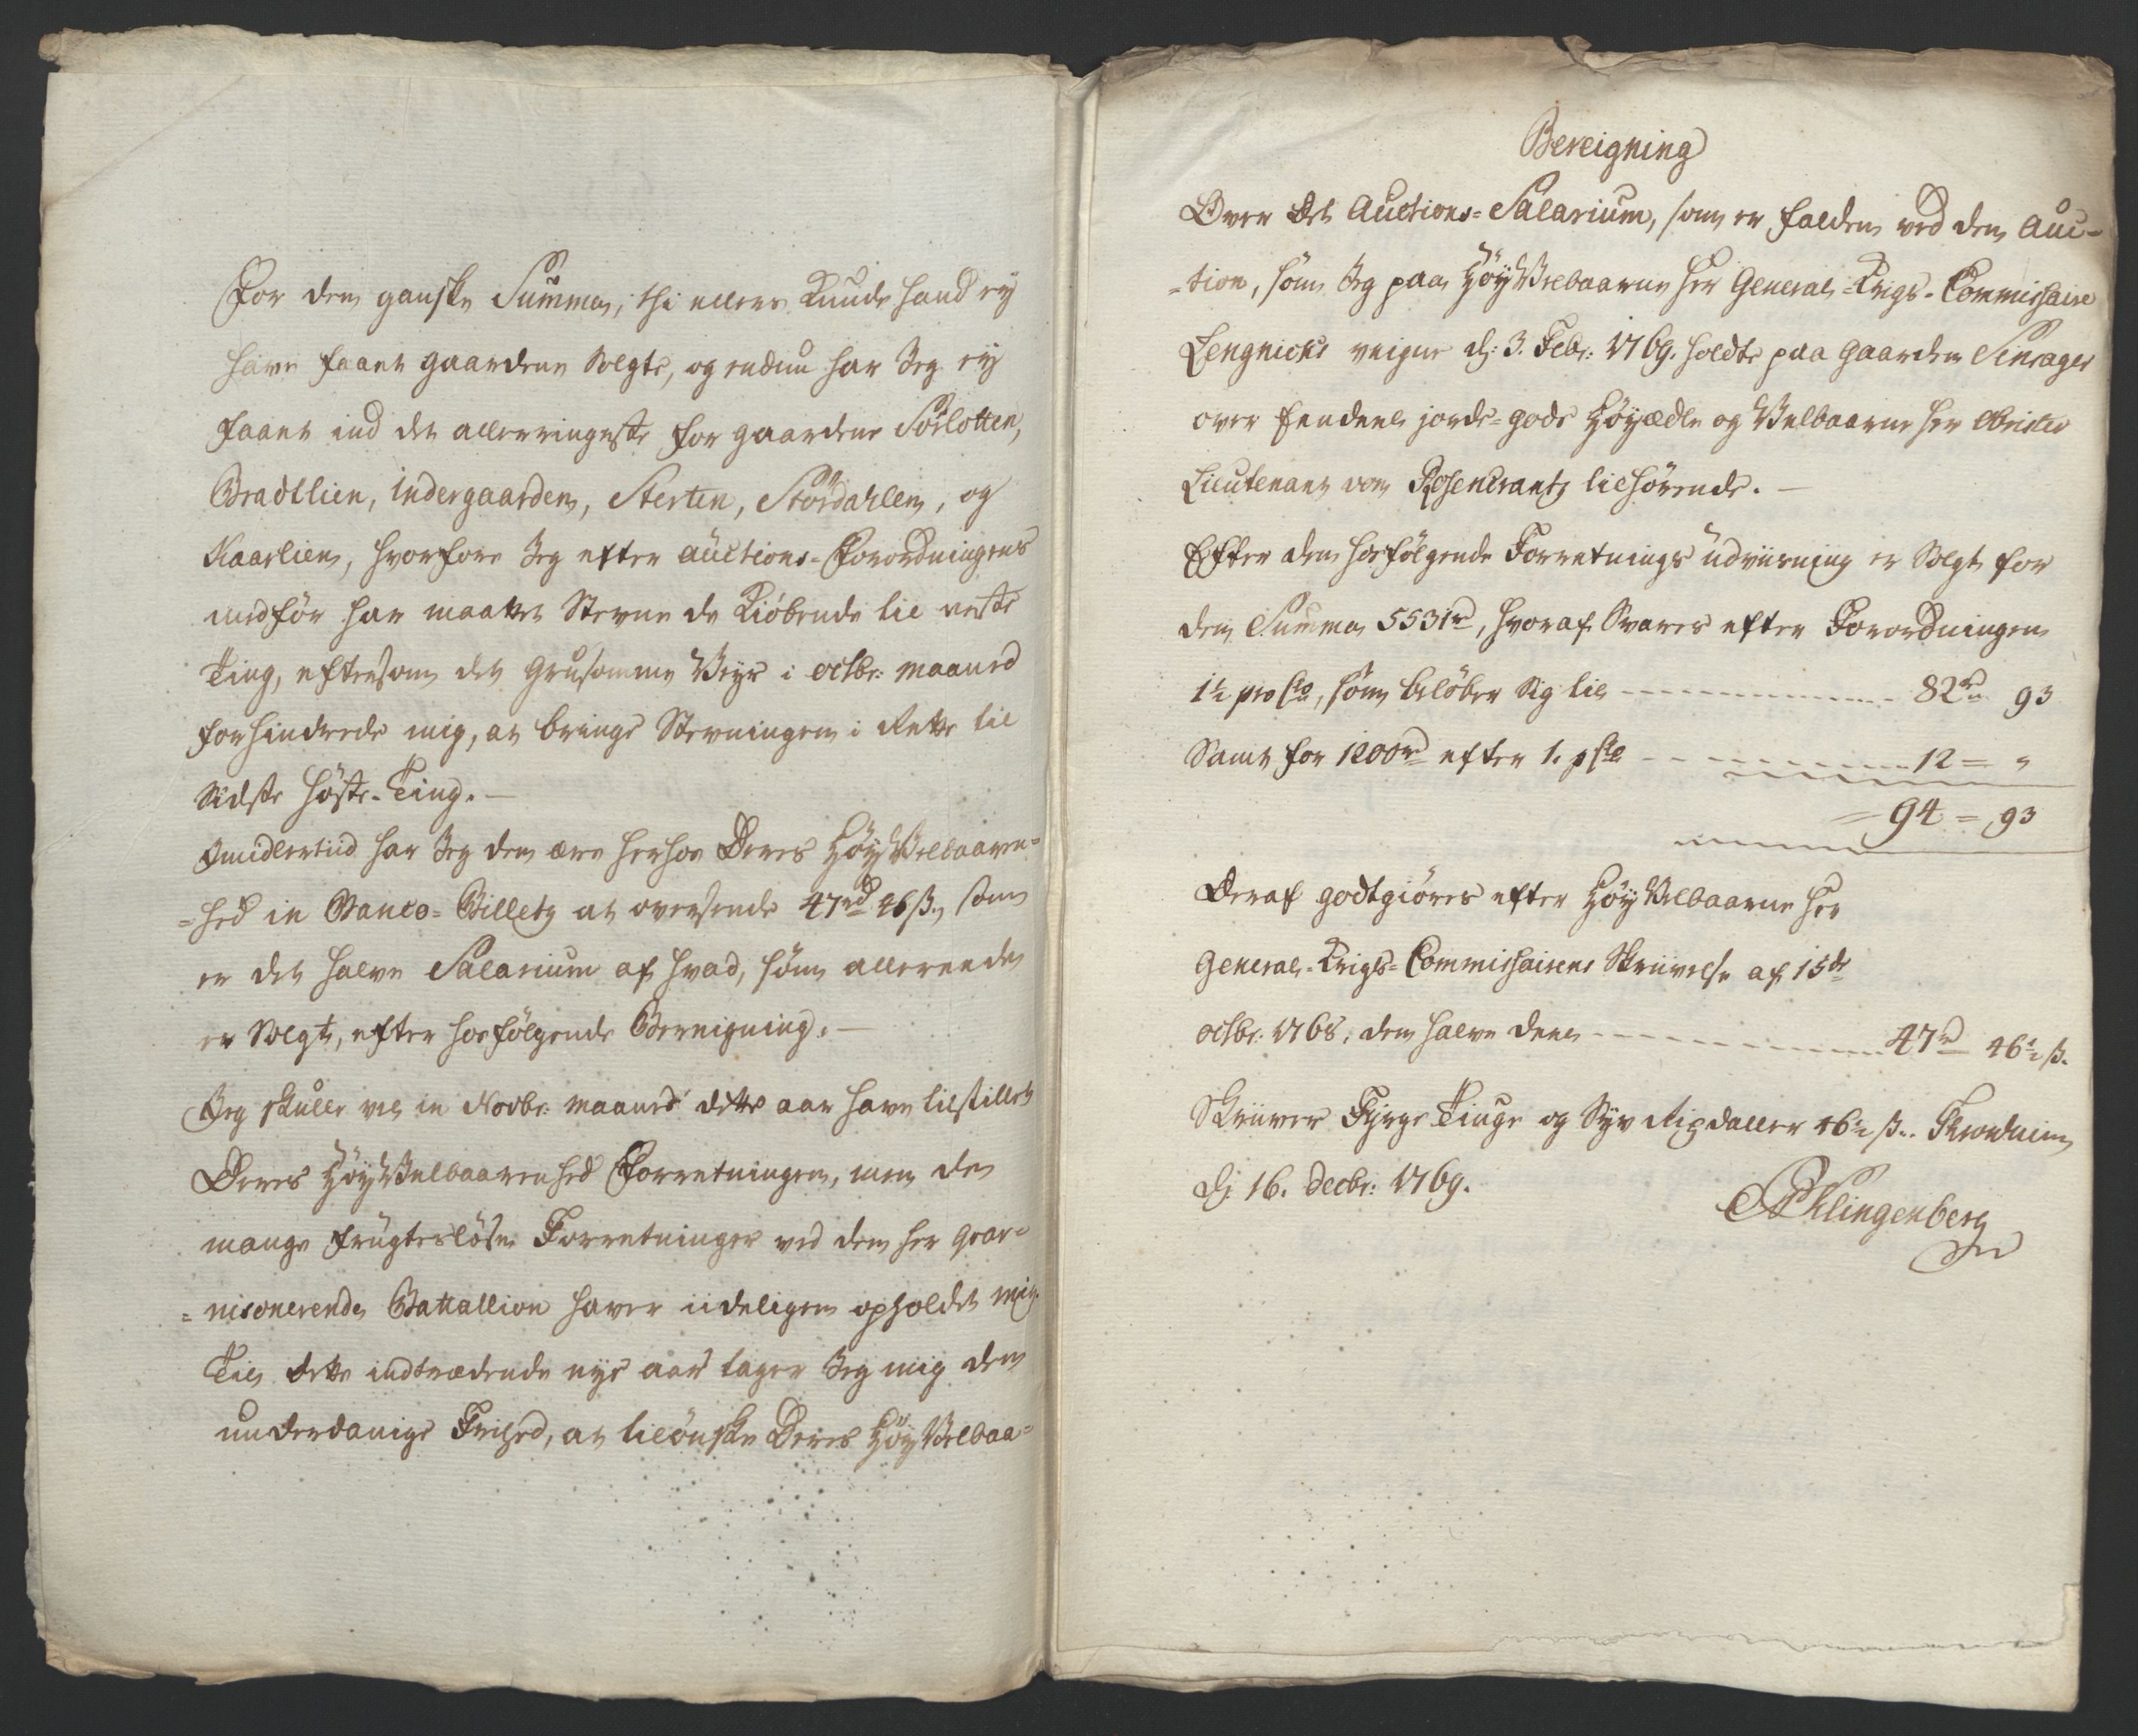 For den ganske Summa, thi ellers kunde hand ey
have faaet gaardene Solgte, og endnu har Jeg ey
faaet ind det allerringeste for gaardene Söeslotten,
Bradtlien, indergaarden, Sterten, Stordahlen, og
Kaarlien, hvorfore Jeg efter auctions-Forordningens
medför har maattet Stevne de Kiöbende til neste
Ting, eftersom det grusomme Veyr i octbr: maaned
forhindrede mig, at bringe Stevningen i Rette til
Sidste höste-Ting. —
Imidlertiid har Jeg den ære herhos Deres HöyVelbaaren-
=hed in Banco-Billetz at oversende 47rd 46 ß., som
er det halve Salarium af hvad, som allereede
er Solgt, efter hosfölgende Bereigning. —
Jeg skulle vel in Novbr: maaned dette aar have tilstillet
Deres HöyVelbaarenhed Forretningen, men de
mange frugtesløse Forretninger ved den her guar-
=nisonerende Battallion haver iideligen opholdet mig.
Til dette indtrædende nye aar tager Jeg mig den
underdanige Frihed, at tilönske Deres HöyVelbaa-
Bereigning
Over det Auctions-Salarium, som er falden ved den Auc-
-tion, som Jeg paa HöyVelbaarne Her General-Krigs-Commissaire
Lengnicks veigne d: 3. Febr: 1769. holdte paa gaarden Sinsager
over Eendeel jorde-gods Höyædle og Velbaarne Her Obrister
Lieutenant von Rosencrantz tilhörende. —
Efter den hosfölgende Forretnings udviisning er Solgt for
den Summa 5531rd, hvoraf Svares efter Forordningen
1½ pro Cto, som belöber sig til - - - - - - - - - 82rd 93
Samt for 1200rd efter 1. p Cto - - - - - - - - - 12 = "
= 94 = 93
Deraf godtgiöres efter HöyVelbaarne Her
General-Krigs-Commissairens Skrivelse af 15de
octbr: 1768, den halve deel - - - - - - - - - 47rd 46½ ß.
Skriver Fyrge Tiuge og Syv Rixdaller 46½ ß. Tronhiem
d: 16. Decbr: 1769.
Klingenberg